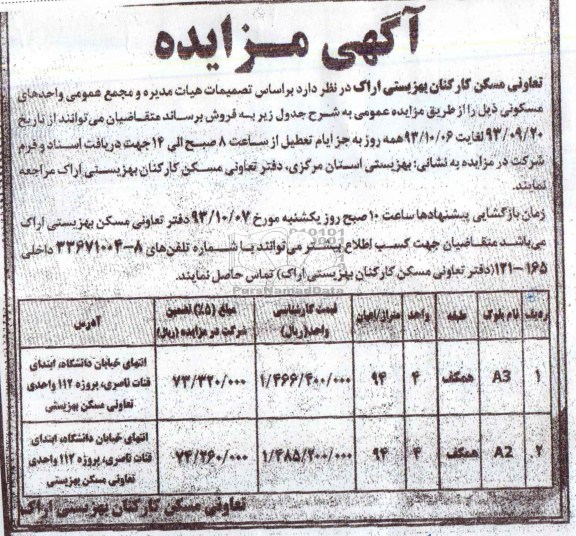 آگهی مزایده
تعاونی مسکن کارکنان بهزیستی اراک در نظر دارد براساس تصمیمات هیات مدیره و مجمع عمومی واحدهای
مسکونی ذیل را از طریق مزایده عمومی به شرح جدول زیر به فروش برساند متقاضیان می توانند از تاریخ
۹۳/۰۹/۲۰ لغایت ۹۳/۱۰/۰۶ همه روز به جز ایام تعطیل از ساعت ۸ صبح الی ۱۴ جهت دریافت اسناد و فرم
شرکت در مزایده به نشانی: بهزیستی استان مرکزی، دفتر تعاونی مسکن کارکنان بهزیستی اراک مراجعه
نمایند.
زمان بازگشایی پیشنهادها ساعت ۱۰ صبح روز یکشنبه مورخ ۹۳/۱۰/۰۷ دفتر تعاونی مسکن بهزیستی اراک
می باشد متقاضیان جهت کسب اطلاع بیشتر می توانند با شماره تلفن های ۸-۳۳۶۷۱۰۰۴ داخلی
۱۶۵-۱۲۱ (دفتر تعاونی مسکن کارکنان بهزیستی اراک) تماس حاصل نمایند.
ParsNamadData
ردیف نام بلوک طبقه واحد متراژ/اعیان قیمت کارشناسی واحد(ریال) مبلغ (۵٪) تضمین شرکت در مزایده (ریال) آدرس
۱ A3 همکف ۴ ۹۴ ۱/۴۶۶/۴۰۰/۰۰۰ ۷۳/۳۲۰/۰۰۰ انتهای خیابان دانشگاه، ابتدای
قنات ناصری، پروژه ۱۱۲ واحدی
تعاونی مسکن بهزیستی
۲ A2 همکف ۴ ۹۴ ۱/۴۸۵/۲۰۰/۰۰۰ ۷۴/۲۶۰/۰۰۰ انتهای خیابان دانشگاه، ابتدای
قنات ناصری، پروژه ۱۱۲ واحدی
تعاونی مسکن بهزیستی
تعاونی مسکن کارکنان بهزیستی اراک